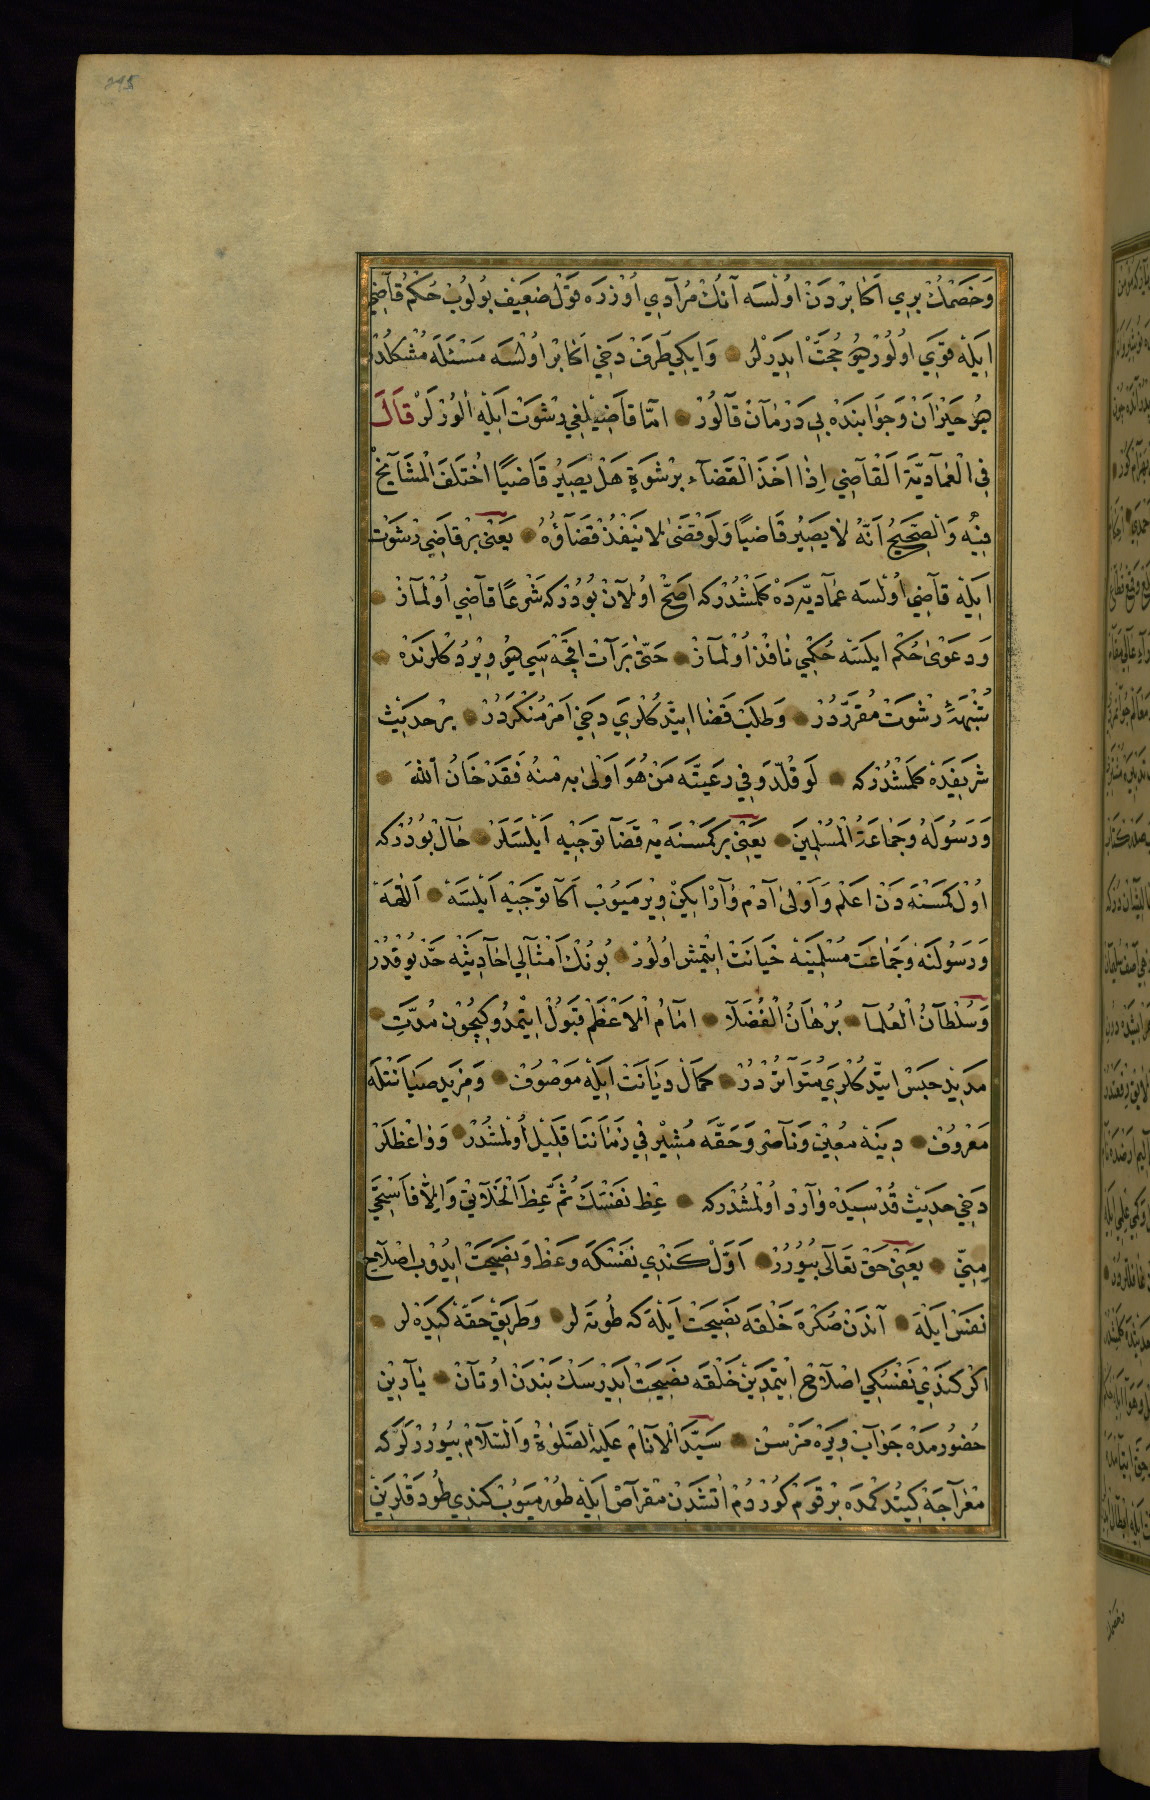 وَخَصْمُكْ بِرِي اَكَابِرْدَنْ اُولْسَه آنُكْ مُرَآدِي اُوْزَرَه قَوْلْ ضَعِيفْ بُولُوبْ حُكْمْ قَآضِي
اِيَلَهْ قَوِي اُولُوْر هُوْ حُجَّتْ اِيدَرْلَرْ وَايكِي طَرَفْ دَخِي اَكَابِرْ اُولْسَه مَسْئَلَه مُشْكِلْدُرْ
هُوْ حَيْرَانْ وَجَوَابِنْدَه بِي دَرْمَآنْ قَآلُورْ اَمَّا قَاضِيلِغِي رِشْوَتْ اِيلَهْ اَلُورْلَرْ قَالَ
فِي الْعِمَآدِيَّةِ اَلْقَآضِي اِذَا اَخَذَ الْقَضَآءَ بِرِشْوَةٍ هَلْ يَصِيرُ قَاضِيًا اُخْتَلَفَ الْمَشَآيِخْ
فِيْهِ وَالصَّحِيحُ اَنَّهُ لَا يَصِيرُ قَاضِيًا وَلَوْ قَضَى لَا يَنْفُذْ قَضَآؤُهُ يَعْنِي بِرْ قَاضِي رِشْوَتْ
اِيلَهْ قَآضِي اُولْسَه عِمَآدِيَّه دَهْ كَلْمِشْدُرْكِه اَصَحّْ اُولَآنْ بُودُرْكِه شَرْعًا قَآضِي اُولْمَآزْ
وَدَعْوَى حُكْمْ ايْلَسَه حُكْمِي نَافِذْ اُولْمَآزْ حَتَّى بَرَآتْ اَقْچَه سِي هُوْ وِيرْدُكْلَرِنْدَه
شُبْهَهْ رِشْوَتْ مُقَرَّرْدُرْ وَطَلَبْ قَضَا ايتْدُكْلَرِي دَخِي اَمْرِ مُنْكَرْدُرْ بِرْ حَدِيثْ
شَرِيفِدَهْ كَلْمِشْدُرْكِه لَوْ قُلِّدَ وَفِي رَعِيَّتِه مَنْ هُوَ اَوْلَى بِه مِنْهُ فَقَدْ خَانُ اللّٰهَ
وَرَسُولَهُ وَجَمَاعَةَ الْمُسْلِمِينَ يَعْنِي بِرْ كِمْسَنَه يَه قَضَآ تَوْجِيه اَيْلَسَلَرْ حَالْ بُودُرْكِه
اُولْ كِمْسَنَه دَنْ اَعْلَمْ وَاَوْلَى آدَمْ وَآرْ اِيكَنْ وِيرْمَيُوبْ اَكَا تَوْجِيهْ اَيْلَسَهْ اَللّٰهَهْ
وَرَسُولُنَه وَجَمَاعَتِ مُسْلِمِينَهْ خِيَانَتْ اِيتْمِشْ اُولُورْ بُونُكْ اَمْثَآلِي اَحَآدِيثَهْ حَدّْ يُوقْدُرْ
وَسُلْطَآنُ الْعُلَمَآ بُرْهَانُ الْفُضَلَآ اِمَآمُ الْاَعْظَمْ قَبُولْ اِيتْمَدُوكِيچُونْ مُدَّتِ
مَدِيدْ حَبْسْ ايتْدُكْلَرِي مُتَوَآتِرْدُرْ كَمَالْ دِيَانَتْ اِيلَهْ مَوْصُوفْ وَمَزِيدِ صِيَانَتْلَه
مَعْرُوفْ دِينَهْ مُعِينْ وَنَآصِرْ وَحَقَّه مُشِيرْ فِي زَمَانِنَا قَلِيلْ اُولْمِشْدُرْ وَوَاعِظْلَرْ
دَخِي حَدِيثْ قُدْسِيدَه وَآرِدْ اُولْمُشْدُرْكِه عِظْ نَفْسَكَ ثُمَّ عِظِ الْخَلَآيِقَ وَاِلَّا فَاسْتَحِي
مِنِّي يَعْنِي حَقْ تَعَآلَى بُيُورُرْ اَوَّلْ كَنْدِي نَفْسِكَه وَعَظْ وَنَصِيحَتْ اِيدُوبْ اِصْلَآحِ
نَفْسْ ايلَهْ آنْدَنْ صُكْرَه خَلْقَه نَصِيحَتْ اَيْلَهْ كِه طُوتَه لَرْ وَطَرِيقِ حَقَّه كِيدَه لَرْ
اَكَرْ كَنْدِي نَفْسُكِي اِصْلَآحْ اِيتْمَدِينْ خَلْقَه نَصِيحَتْ اِيدَرْسَكْ بَنْدَنْ اُوتَآنْ يَآرِينْ
حُضُورِمْدَه جَوَآبْ وِيرَه مَزْسِنْ سَيِّدُ الْاَنَامْ عَلَيْهِ الصَّلٰوةْ وَالسَّلَآمْ بُيُورُرْلَرْكِه
مِعْرَآجَهْ كِيتْدُكُمْدَه بِرْ قَوْمْ كُورْدُمْ اَتَشْدَنْ مِقْرَآضْ اِيلَه طُورْمَيُوبْ كَنْدِي طُودَقْلَرِينْ